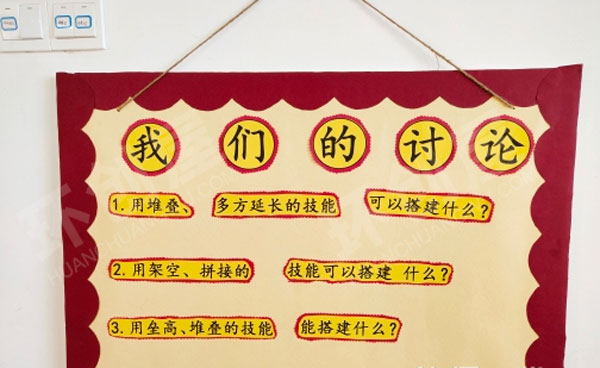 我们的讨论
1.用堆叠、多方延长的技能可以搭建什么?
2.用架空、拼接的技能可以搭建 什么?
3.用垒高、堆叠的技能能搭建什么?